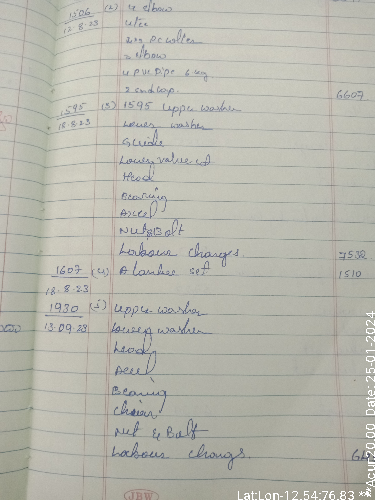 1506 (2) 4 elbow
12-8-23 4 tee
elbow
4 PVC Pipe 6 kg
2 endcap. 6607
1595 (3) 1595 uppu washer
18-8-23 Lower washer
Guide
Lower value
Head
Bearing
Axcel
Nut & Bolt
Labour charges. 7532
1607 (4) set 1510
18-8-23
1930 (5) uppu washer
13-09-23 Lower washer
Head
Axcel
Bearing
chain
Nut & Bolt
Labour chargs.
JBW
Lat:Lon-12.54:76.83 **
**Acur:20.00 Date: 25-01-2024